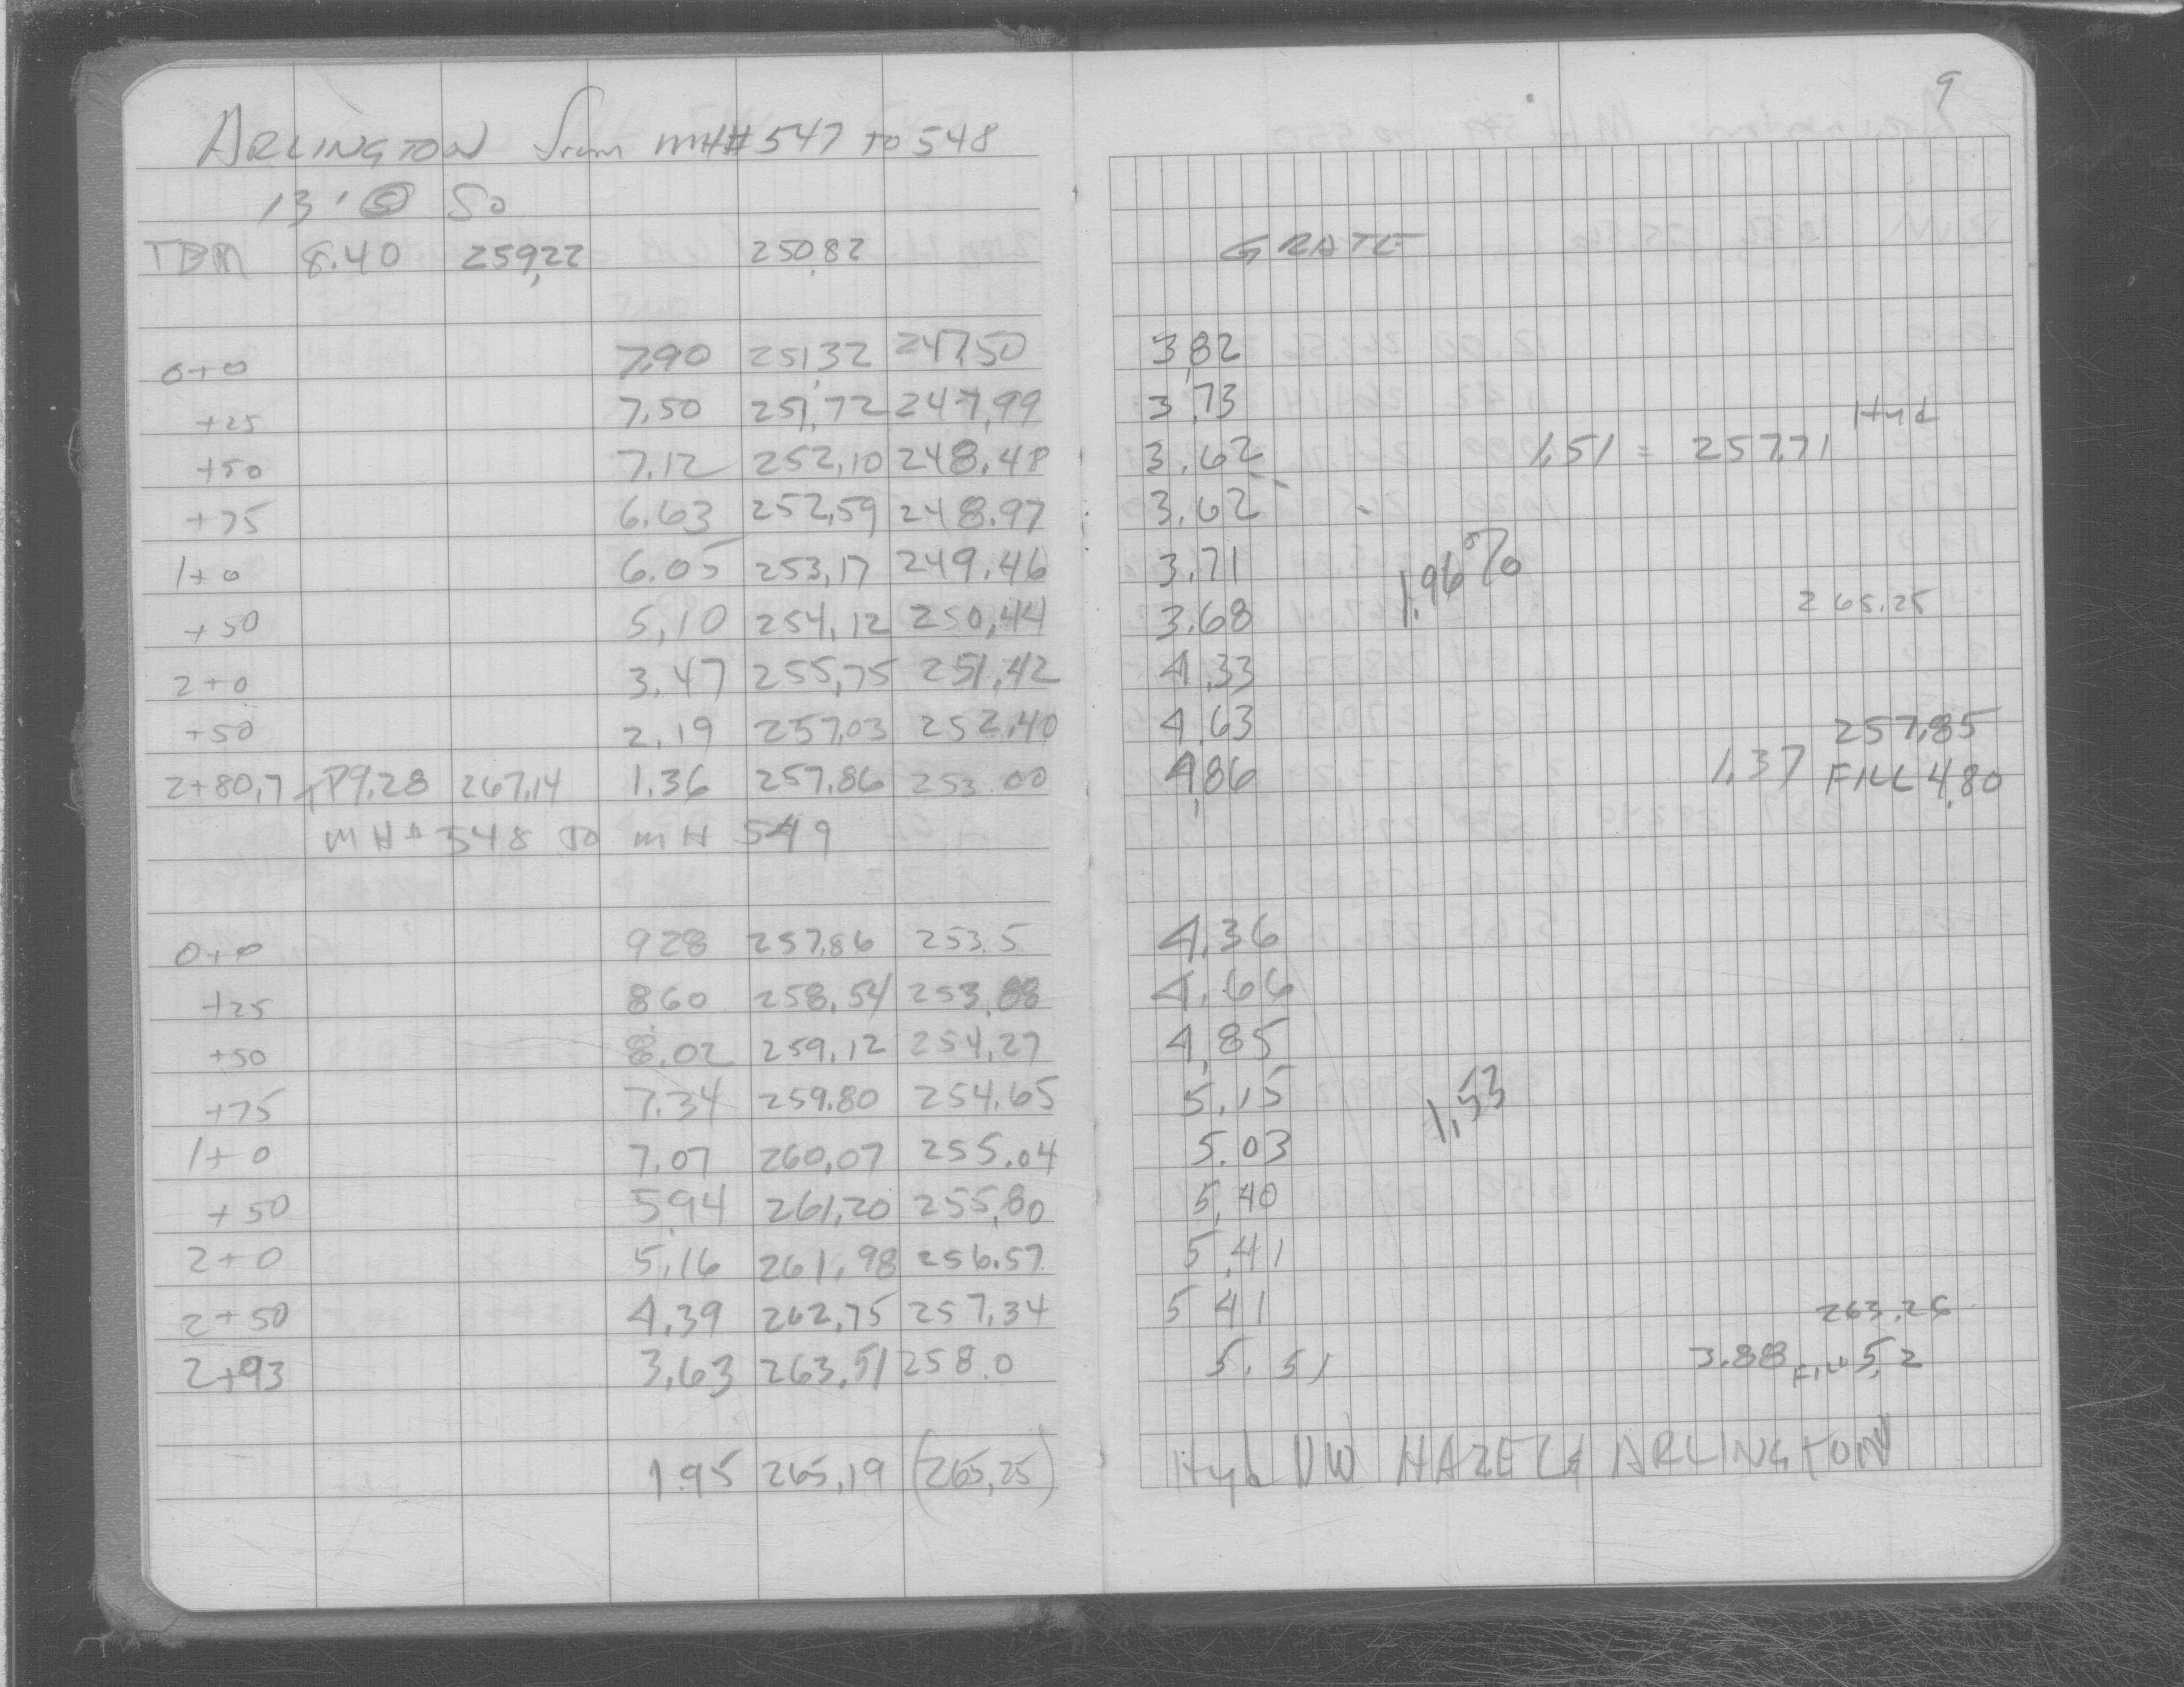 9
ARLINGTON from MH# 547 TO 548
13' @ So
TBM 8.40 259.22 250.82 GRATE
0+0 7.90 251.32 247.50 3.82
+25 7.50 251.72 247.99 3.73
Hyd
+50 7.12 252.10 248.48 3.62 1.51 = 257.71
+75 6.63 252.59 248.97 3.62
1+0 6.05 253.17 249.46 3.71 1.96%
+50 5.10 254.12 250.44 3.68 265.25
2+0 3.47 255.75 251.42 4.33
+50 2.19 257.03 252.40 4.63 257.85
2+80.7 TP 9.28 267.14 1.36 257.86 253.00 4.86 1.37 FILL 4.80
MH# 548 TO MH 549
0+0 928 257.86 253.5 4.36
+25 860 258.54 253.88 4.66
+50 8.02 259.12 254.27 4.85
+75 7.34 259.80 254.65 5.15 1.53
1+0 7.07 260.07 255.04 5.03
+50 5.94 261.20 255.80 5.40
2+0 5.16 261.98 256.57 5.41
2+50 4.39 262.75 257.34 5 41 263.26
2+93 3.63 263.51 258.0 5.51 3.88 FILL 5.2
1.95 265.19 (265.25) Hyd NW HAZEL & ARLINGTON